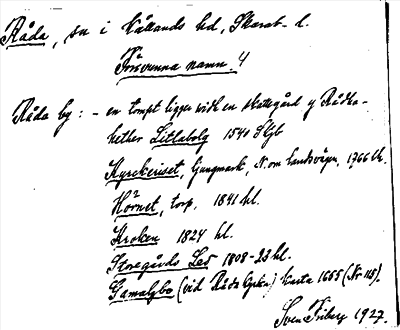 Råda, sn i Kållands hd, Skarab. l.
Försvunna namn. 4
Råda by: - en tompt ligger widh en skattegård y Rådha-
kether Litlabolg 1540 SJb
Kyrckeriset, Gungmark, N. om landsvägen, 1766 Ch.
Hornet, torp. 1841 hl.
Kroken 1824 hl.
Storegårds Led 1808-23 hl.
Gamalgbo (vid Råda Gphn) karta 1655 (Nr 115).
Sven Friberg 1927.